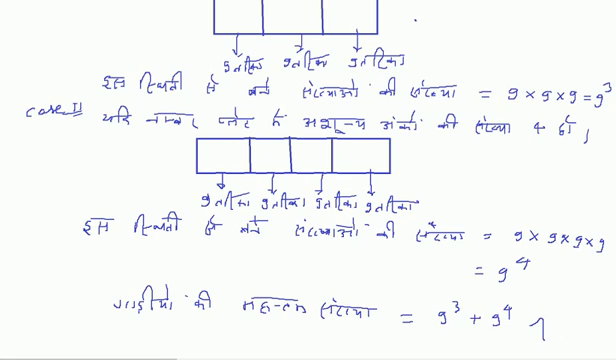 9 तरीका 9 तरीका 9 तरीका
इस स्थिती से बने संख्याओं की संख्या = 9 × 9 × 9 = 9³
Case II यदि नम्बर प्लेट में अशून्य अंकों की संख्या 4 हो,
9 तरीका 9 तरीका 9 तरीका 9 तरीका
इस स्थिती से बने संख्याओं की संख्या = 9 × 9 × 9 × 9
= 9⁴
गाड़ीयों की महत्तम संख्या = 9³ + 9⁴